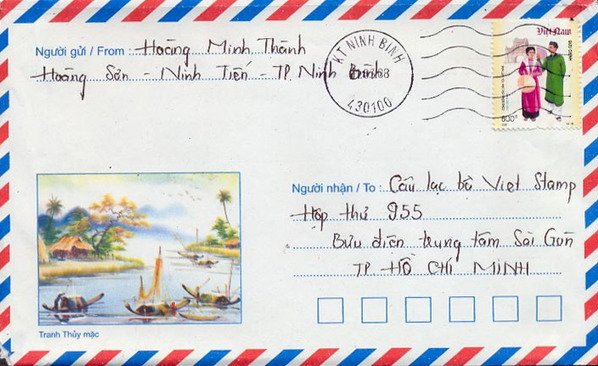 Người gửi / From : Hoàng Minh Thành
Hoàng Sơn - Ninh Tiến - TP. Ninh Bình
K.T NINH BINH
430100
Việt Nam
BƯU CHÍNH
800đ
Người nhận / To : Câu lạc bộ Viet Stamp
Hộp thư 955
Bưu điện trung tâm Sài Gòn
TP. HỒ CHÍ MINH
Tranh Thủy mặc